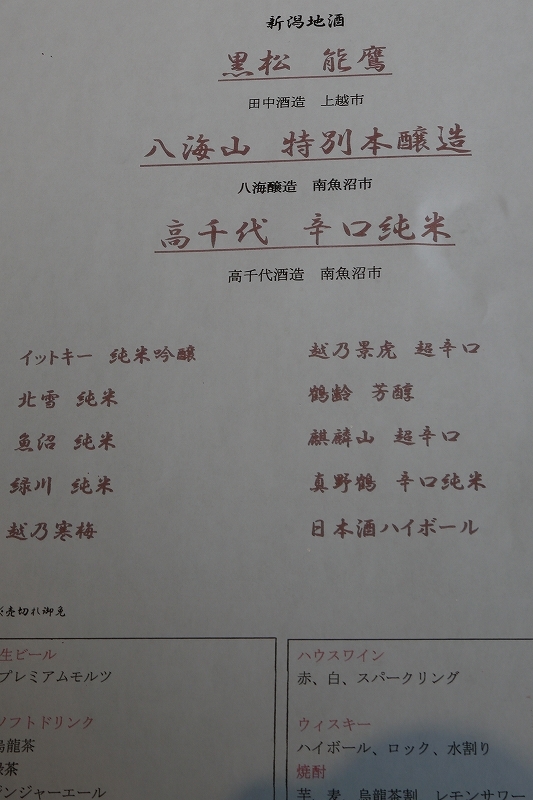 新潟地酒
黒松　能鷹
田中酒造　上越市
八海山　特別本醸造
八海醸造　南魚沼市
高千代　辛口純米
高千代酒造　南魚沼市
イットキー　純米吟醸
北雪　純米
魚沼　純米
緑川　純米
越乃寒梅
越乃景虎　超辛口
鶴齢　芳醇
麒麟山　超辛口
真野鶴　辛口純米
日本酒ハイボール
売切れ御免
生ビール
プレミアムモルツ
ソフトドリンク
烏龍茶
緑茶
ジンジャーエール
ハウスワイン
赤、白、スパークリング
ウィスキー
ハイボール、ロック、水割り
焼酎
芋、麦、烏龍茶割、レモンサワー